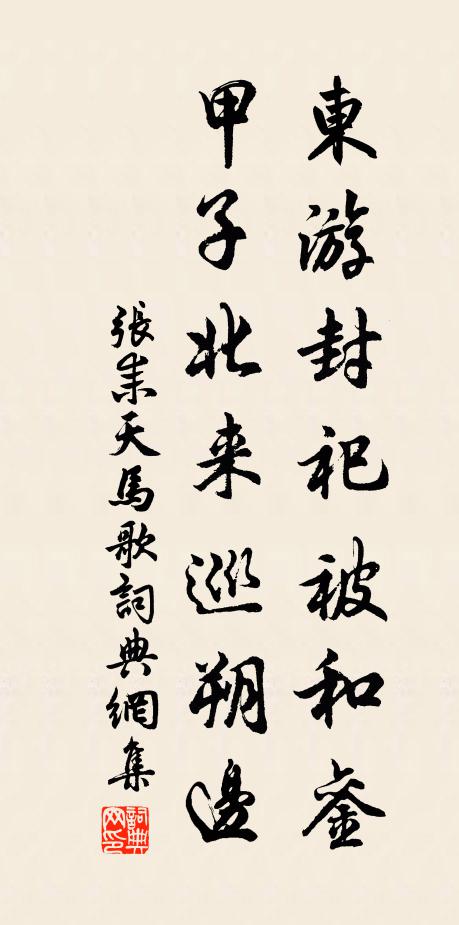 東游封祀被和銮
甲子北来巡朔邊
張耒天馬歌詞典網集
詞典網印